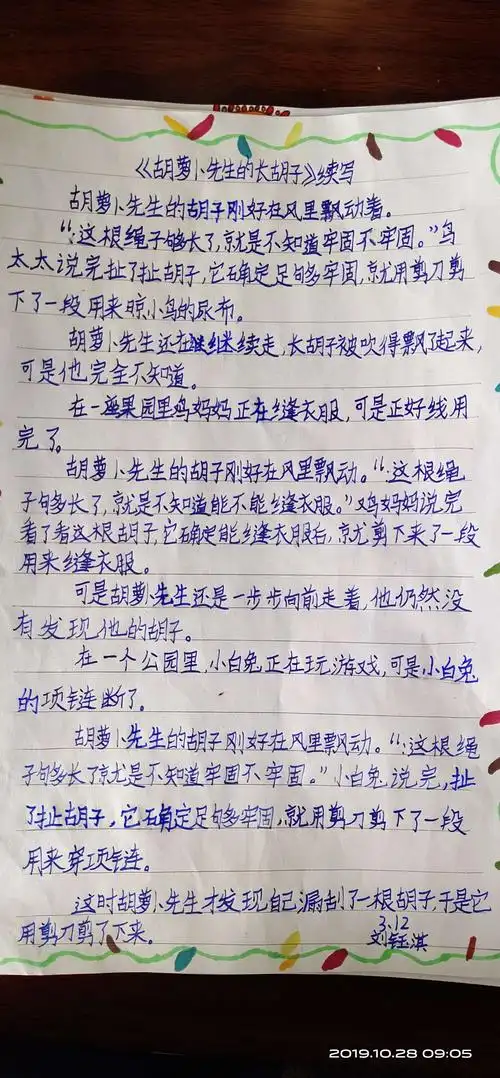 《胡萝卜先生的长胡子》续写
胡萝卜先生的胡子刚好在风里飘动着。
“这根绳子够长了,就是不知道牢固不牢固。”鸟
太太说完扯了扯胡子,它确定足够牢固,就用剪刀剪
下了一段用来晾小鸟的尿布。
胡萝卜先生还在继续走,长胡子被吹得飘了起来,
可是他完全不知道。
在一座果园里鸡妈妈正在缝衣服,可是正好线用
完了。
胡萝卜先生的胡子刚好在风里飘动。“这根绳
子够长了,就是不知道能不能缝衣服。”鸡妈妈说完
看了看这根胡子,它确定能缝衣服后,就剪下来了一段
用来缝衣服。
可是胡萝卜先生还是一步步向前走着,他仍然没
有发现他的胡子。
在一个公园里,小白兔正在玩游戏,可是小白兔
的项链断了。
胡萝卜先生的胡子刚好在风里飘动。“这根绳
子够长了就是不知道牢固不牢固。”小白兔说完,扯
了扯胡子,它确定足够牢固,就用剪刀剪下了一段
用来穿项链。
这时胡萝卜先生才发现自己漏刮了一根胡子,于是它
用剪刀剪了下来。
3.12
刘钰淇
2019.10.28 09:05